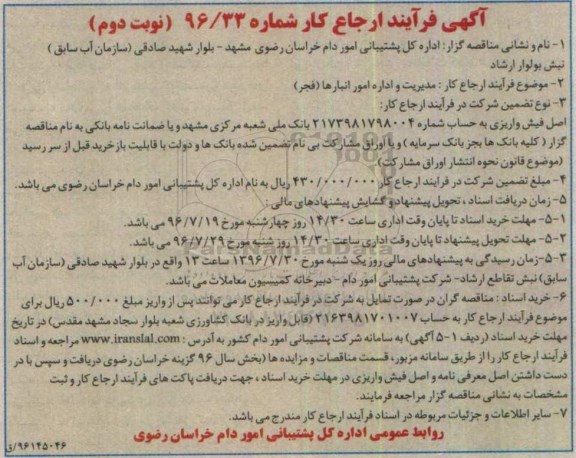 آگهی فرآیند ارجاع کار شماره ۹۶/۳۳ (نوبت دوم)
۱- نام و نشانی مناقصه گزار: اداره کل پشتیبانی امور دام خراسان رضوی مشهد - بلوار شهید صادقی (سازمان آب سابق)
نبش بولوار ارشاد
۲- موضوع فرآیند ارجاع کار: مدیریت و اداره امور انبارها (فجر)
۳- نوع تضمین شرکت در فرآیند ارجاع کار:
اصل فیش واریزی به حساب شماره ۲۱۷۳۹۸۱۷۹۸۰۰۴ بانک ملی شعبه مرکزی مشهد و یا ضمانت نامه بانکی به نام مناقصه
گزار (کلیه بانک ها بجز بانک سرمایه) و یا اوراق مشارکت بی نام تضمین شده بانک ها و دولت با قابلیت بازخرید قبل از سر رسید
(موضوع قانون نحوه انتشار اوراق مشارکت)
۴- مبلغ تضمین شرکت در فرایند ارجاع کار ۴۳۰/۰۰۰/۰۰۰ ریال به نام اداره کل پشتیبانی امور دام خراسان رضوی می باشد.
۵- زمان دریافت اسناد، تحویل پیشنهاد و گشایش پیشنهادهای مالی:
۵-۱- مهلت خرید اسناد تا پایان وقت اداری ساعت ۱۴/۳۰ روز چهارشنبه مورخ ۹۶/۷/۱۹ می باشد.
۵-۲- مهلت تحویل پیشنهاد تا پایان وقت اداری ساعت ۱۴/۳۰ روز شنبه مورخ ۹۶/۷/۲۹ می باشد.
۵-۳- زمان رسیدگی به پیشنهادهای مالی روز یک شنبه مورخ ۱۳۹۶/۷/۳۰ ساعت ۱۳ واقع در بلوار شهید صادقی (سازمان آب
سابق) نبش تقاطع ارشاد- شرکت پشتیبانی امور دام - دبیرخانه کمیسیون معاملات می باشد.
۶- خرید اسناد: مناقصه گران در صورت تمایل به شرکت در فرآیند ارجاع کار می توانند پس از واریز مبلغ ۵۰۰/۰۰۰ ریال برای
موضوع فرآیند ارجاع کار به حساب ۲۱۶۳۹۸۱۷۰۱۰۰۷ (قابل واریز در بانک کشاورزی شعبه بلوار سجاد مشهد مقدس) در تاریخ
مهلت خرید اسناد (ردیف ۱-۵ آگهی) به سامانه شرکت پشتیبانی امور دام کشور به آدرس: www.iranslal.com مراجعه و اسناد
فرآیند ارجاع کار را از طریق سامانه مزبور، قسمت مناقصات و مزایده ها (بخش سال ۹۶ گزینه خراسان رضوی دریافت و سپس با در
دست داشتن اصل معرفی نامه و اصل فیش واریزی در مهلت خرید اسناد، جهت دریافت پاکت های فرآیند ارجاع کار و ثبت
مشخصات به نشانی مناقصه گزار مراجعه فرمایند.
۷- سایر اطلاعات و جزئیات مربوطه در اسناد فرآیند ارجاع کار مندرج می باشد.
روابط عمومی اداره کل پشتیبانی امور دام خراسان رضوی
۹۶۱۴۵۰۴۶/ق